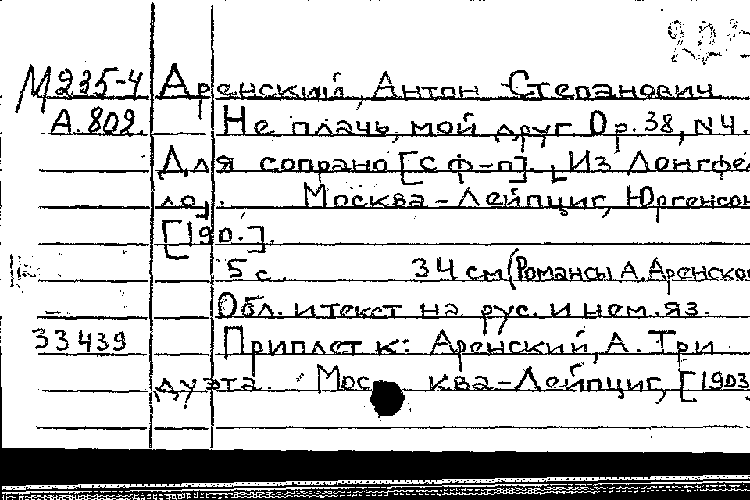 М235-4 Аренский, Антон Степанович
А.802. Не плачь, мой друг. Op. 38, N 4.
Для сопрано [с ф-п]. [Из Лонгфел
ло].   Москва - Лейпциг, Юргенсон
[190.].
5 с.   34 см (Романсы А.Аренско
Обл. и текст на рус. и нем. яз.
33439 Приплет к: Аренский, А. Три
дуэта. Москва-Лейпциг, [1903